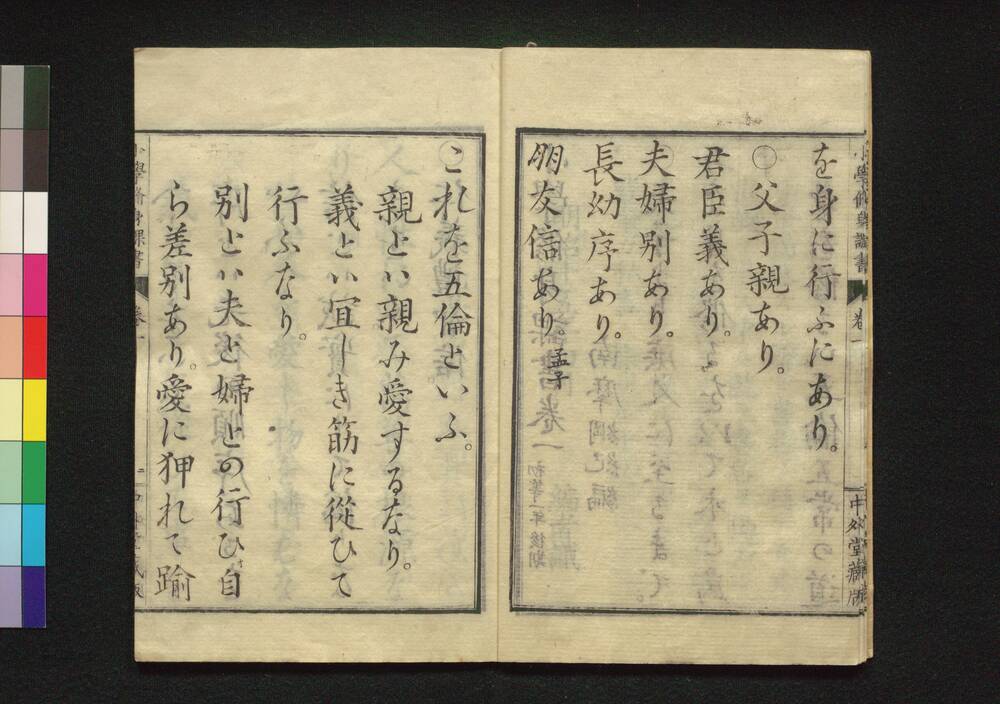 を身に行ふにあり。
○父子親あり。
君臣義あり。
夫婦別あり。
長幼序あり。
朋友信あり。孟子
○これを五倫といふ。
親とハ親み愛するなり。
義とハ宜しき筋に從ひて
行ふなり。
別とハ夫と婦との行ひ自
ら差別あり。愛に狎れて踰
小學修身課書
卷一
中外堂藏版